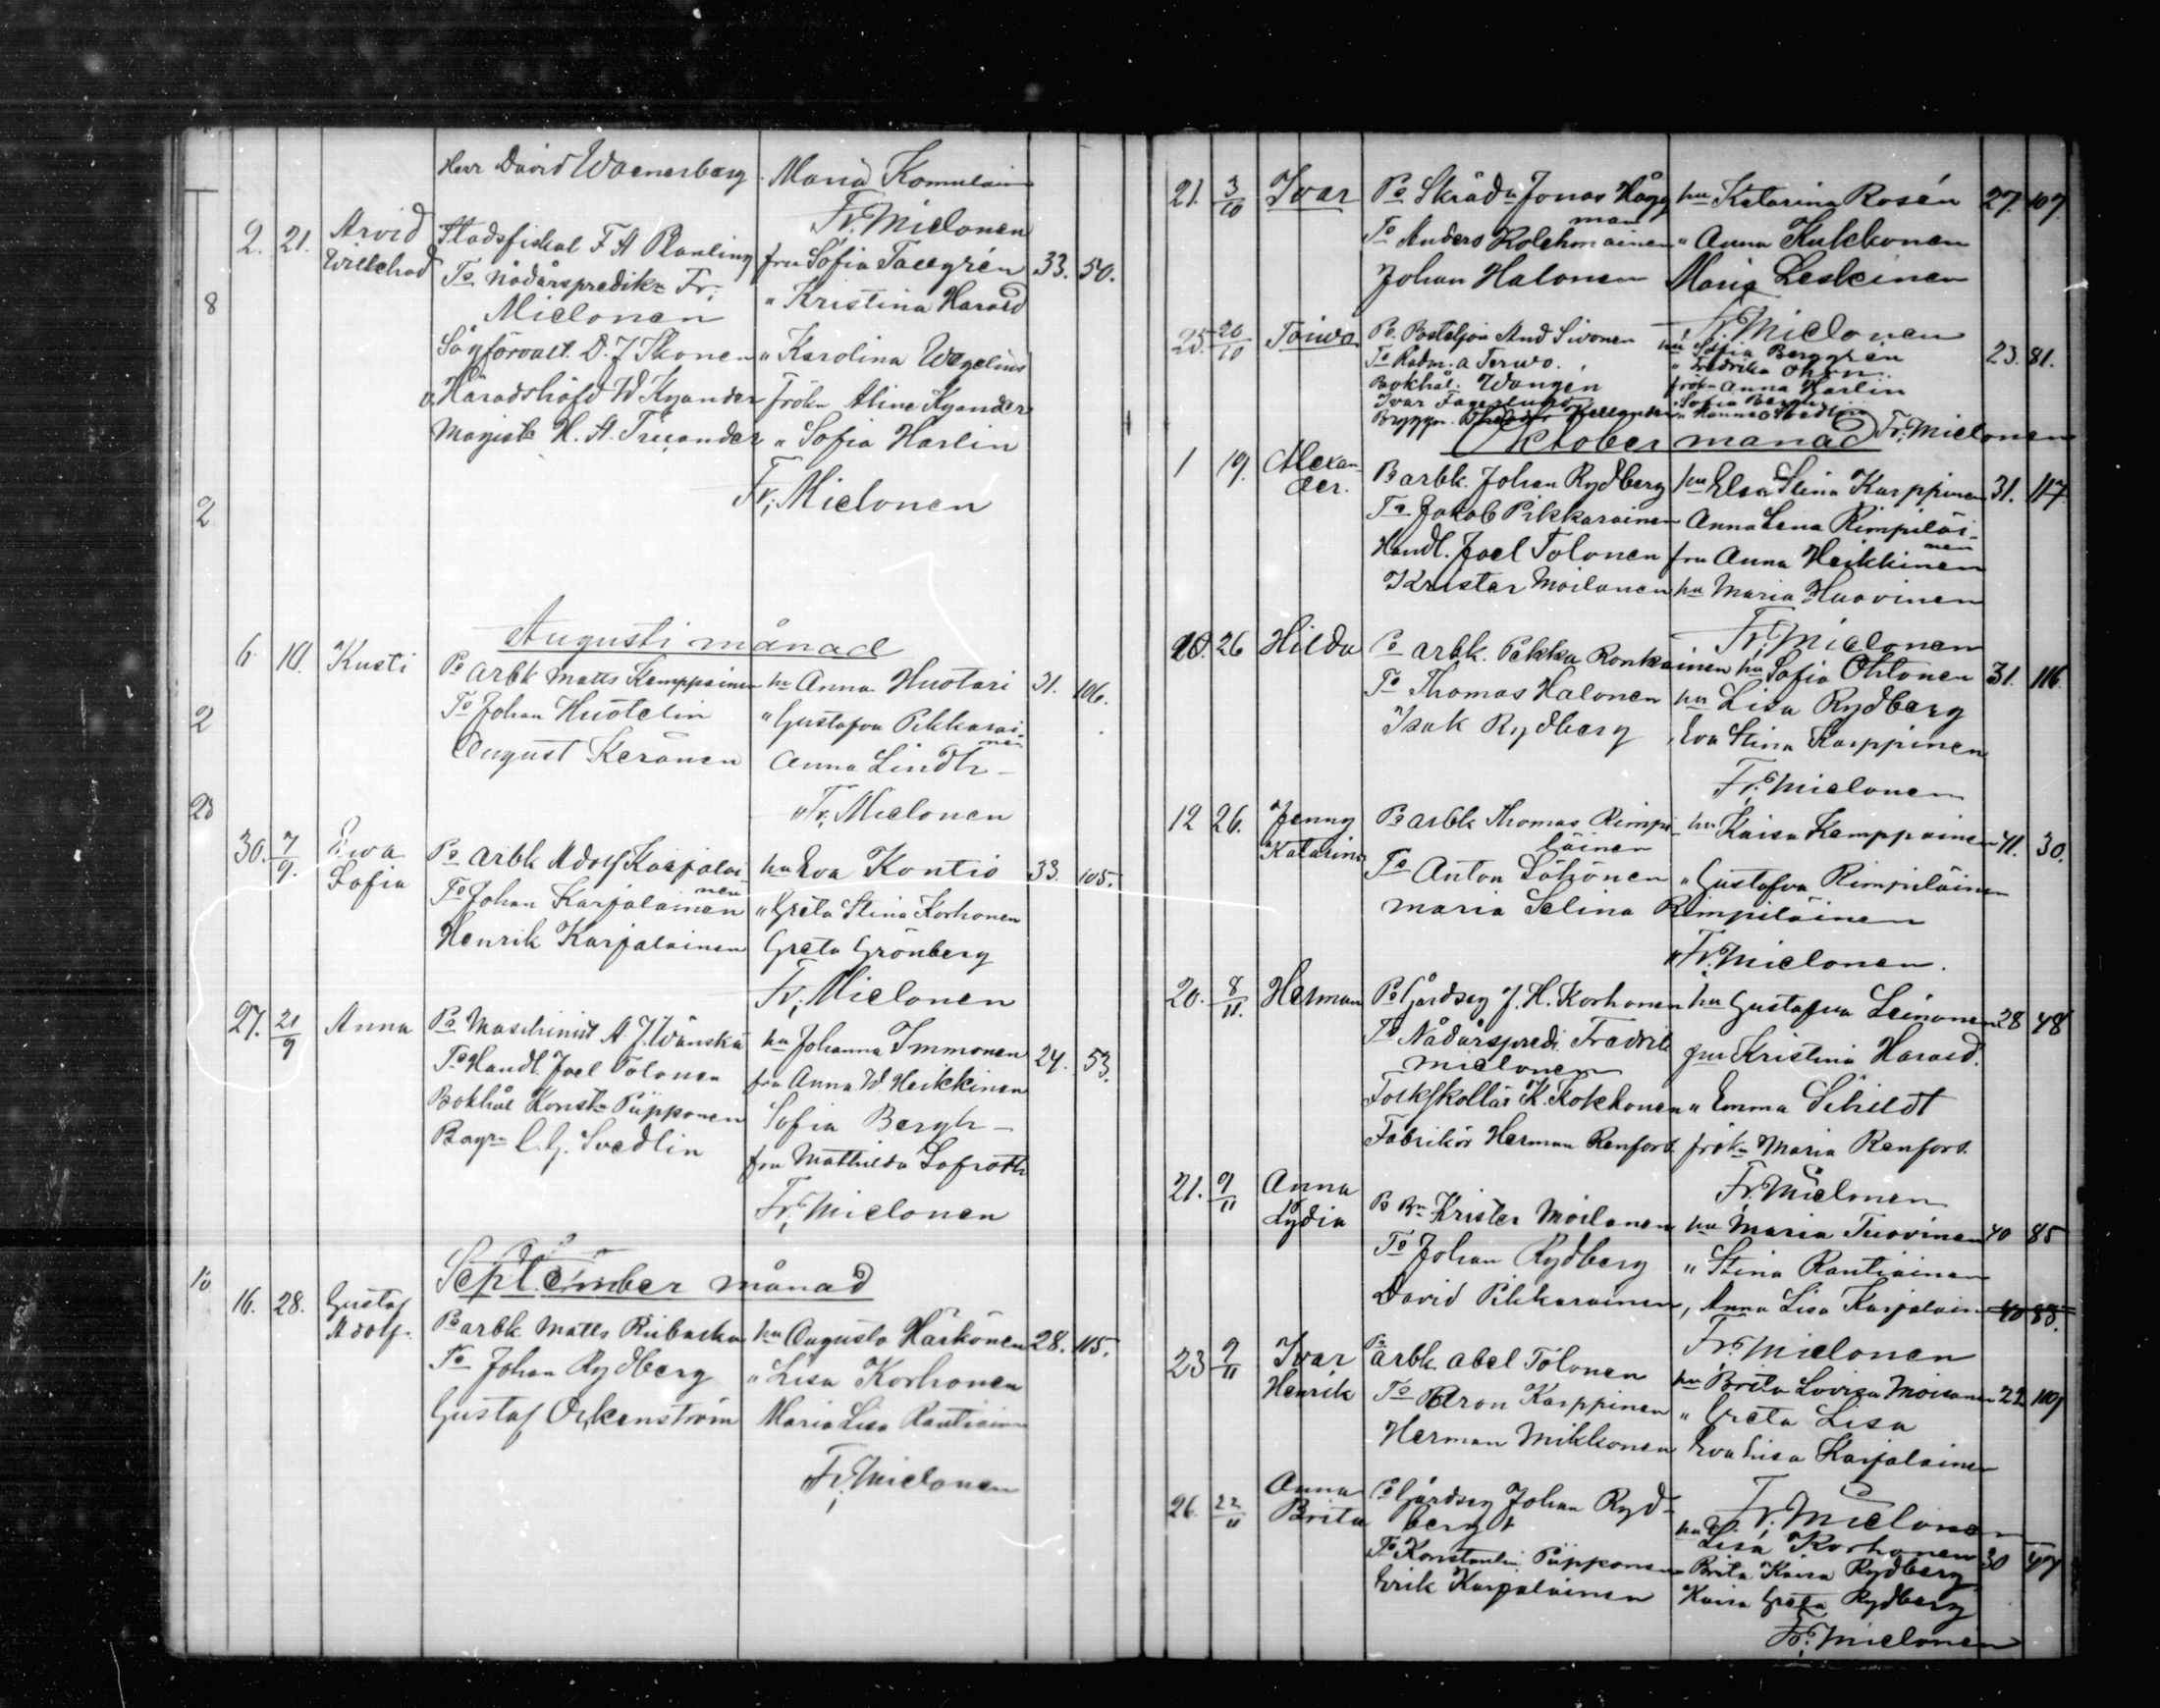 Herr David Wænerberg Maria Komulain
Fr. Mielonen
2. 21. Arvid Stadsfiskal F A Planting fru Sofia Tallgrén 33. 50.
Willehad To Nådårspredikn Fr. " Kristina Harald
8
Mielonen
Sågförvalt. D. J. Ikonen " Karolina Wegelius
v. Häradshöfd W Kyander Frökn Alina Kyander
Magistr K. A. Ticcander " Sofia Harlin
2
Fr. Mielonen
Augusti månad
6. 10. Kusti Po Arbk Matts Kemppainen hu Anna Huotari 31. 106.
To Johan Hustelin " Gustafva Pikkarai-
2
nen
August Keränen Anna Lindh
Fr. Mielonen
28
30. 7/9. Ewa Po arbk Adolf Karjalai- hu Eva Kontio 33. 105.
Sofia nen
To Johan Karjalainen " Greta Stina Korhonen
Henrik Karjalainen Greta Grönberg
Fr. Mielonen
27. 21/9 Anna Po Maschinist A. J. Wänskä hu Johanna Immonen 24. 53.
To Handl. Joel Tolonen fru Anna W Heikkinen
Bokhål Konstn Piipponen Sofia Bergh
Bagrn C. G. Svedlin fru Mathilda Lofroth
Fr. Mielonen
September månad
10
16. 28. Gustaf Po arbk Matts Rubaska hu Augusta Härkönen 28. 115.
Adolf.
To Johan Rydberg " Lisa Korhonen
Gustaf Öckenström Maria Lisa Rautiainen
Fr. Mielonen
21. 3/10 Ivar Po Skrädn Jonas Hägg hu Katarina Rosén 27. 107.
man
To Anders Kolehmainen " Anna Kukkonen
Johan Halonen Maria Leskinen
Fr. Mielonen
25. 20/10 Toivo Po. Posteljon And Sivonen hu Sofia Berggrén 23. 81.
To Rådm. A Terwo. " Fredrika Ohln
Bokhål. Wangén frökn Anna Harlin
Ivar Fagerlund " Sofia Bergh
Bryggn. Theodor Kellander " Hanna Svedlin
Oktober månad Fr. Mielonen
1 19. Alexan- Po arbk. Johan Rydberg hu Elsa Stina Karppinen 31. 117.
der.
To Jakob Pikkarainen Anna Lena Rimpiläi-
nen
Handl. Joel Tolonen fru Anna Heikkinen
Krister Moilanen hu Maria Huovinen
Fr. Mielonen
10. 26 Hilda Po arbk. Pekka Ronkainen hu Sofia Ohtonen 31. 116.
To Thomas Halonen hu Lisa Rydberg
Isak Rydberg Eva Stina Karppinen
Fr. Mielonen
12 26. Jenny Po arbk Thomas Rimpi- hu Kaisa Kemppainen 41. 30.
Katarina läinen
To Anton Sähönen " Gustafva Rimpiläinen
Maria Selina Rimpiläinen
Fr. Mielonen.
20. 8/11. Herman Po Gårdseg J. H. Korhonen hu Gustafva Leinonen 28 48
To Nådårspredi. Fredrik fru Kristina Harald.
Mielonen
Folkskollär K. Kokkonen " Emma Schildt
Fabrikör Herman Renfors. frökn Maria Renfors.
Fr. Mielonen
21. 9/11 Anna Po Bn Krister Moilanen hu Maria Tuovinen 40 85
Lydia
To Johan Rydberg " Stina Rautiainen
David Pikkarainen, Anna Lisa Karjalain 40 85.
Fr. Mielonen
23 9/11 Ivar Po arbk. Abel Tolonen hu Brita Lovisa Moilanen 22 109
Henrik To Aron Karppinen " Greta Lisa
Herman Mikkonen Eva Lisa Karjalainen
Fr. Mielonen
26. 22/11 Anna Po Gårdseg Johan Ryd- hu Lisa Korhonen 30 47
Brita berg
To Konstantin Piipponen Brita Kaisa Rydberg
Erik Karjalainen Kaisa Greta Rydberg
Fr. Mielonen